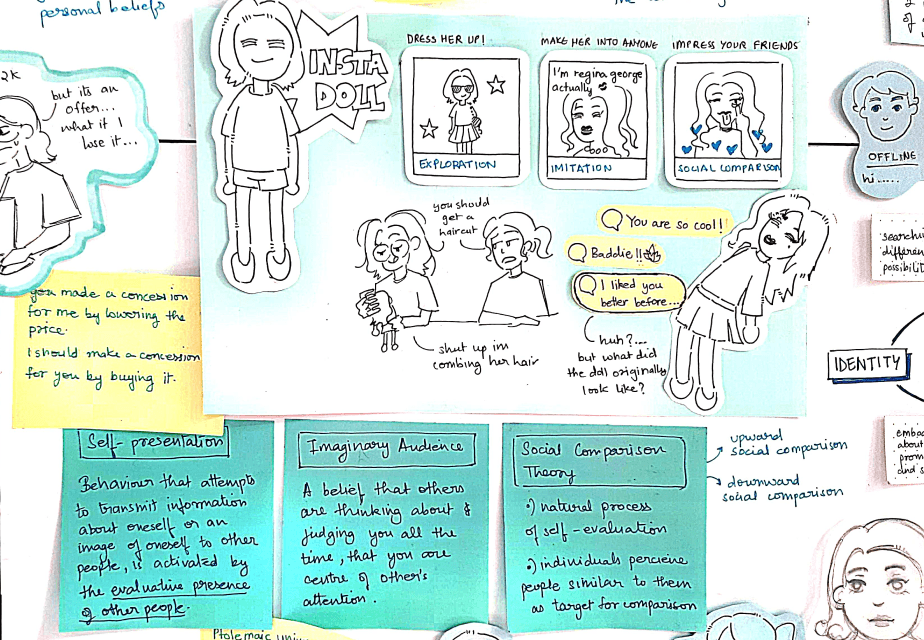 personal beliefs
2K
but its an
offer...
what if I
lose it...
INSTA
DOLL
DRESS HER UP!
EXPLORATION
MAKE HER INTO ANYONE
I'm regina george
actually
IMITATION
IMPRESS YOUR FRIENDS
SOCIAL COMPARISON
OFFLINE
hi.....
you should
get a
haircut
shut up im
combing her hair
You are so cool!
Baddie!!
I liked you
better before...
huh?...
but what did
the doll originally
look like?
you made a concession
for me by lowering the
price.
I should make a concession
for you by buying it.
IDENTITY
Self-presentation
Behaviour that attempts
to transmit information
about oneself or an
image of oneself to other
people, is activated by
the evaluative presence
of other people.
Imaginary Audience
A belief that others
are thinking about &
judging you all the
time, that you are
centre of other's
attention.
Social Comparison
Theory
•) natural process
of self-evaluation
•) individuals percieve
people similar to them
as target for comparison
upward
social comparison
downward
social comparison
about
Ptolemaic